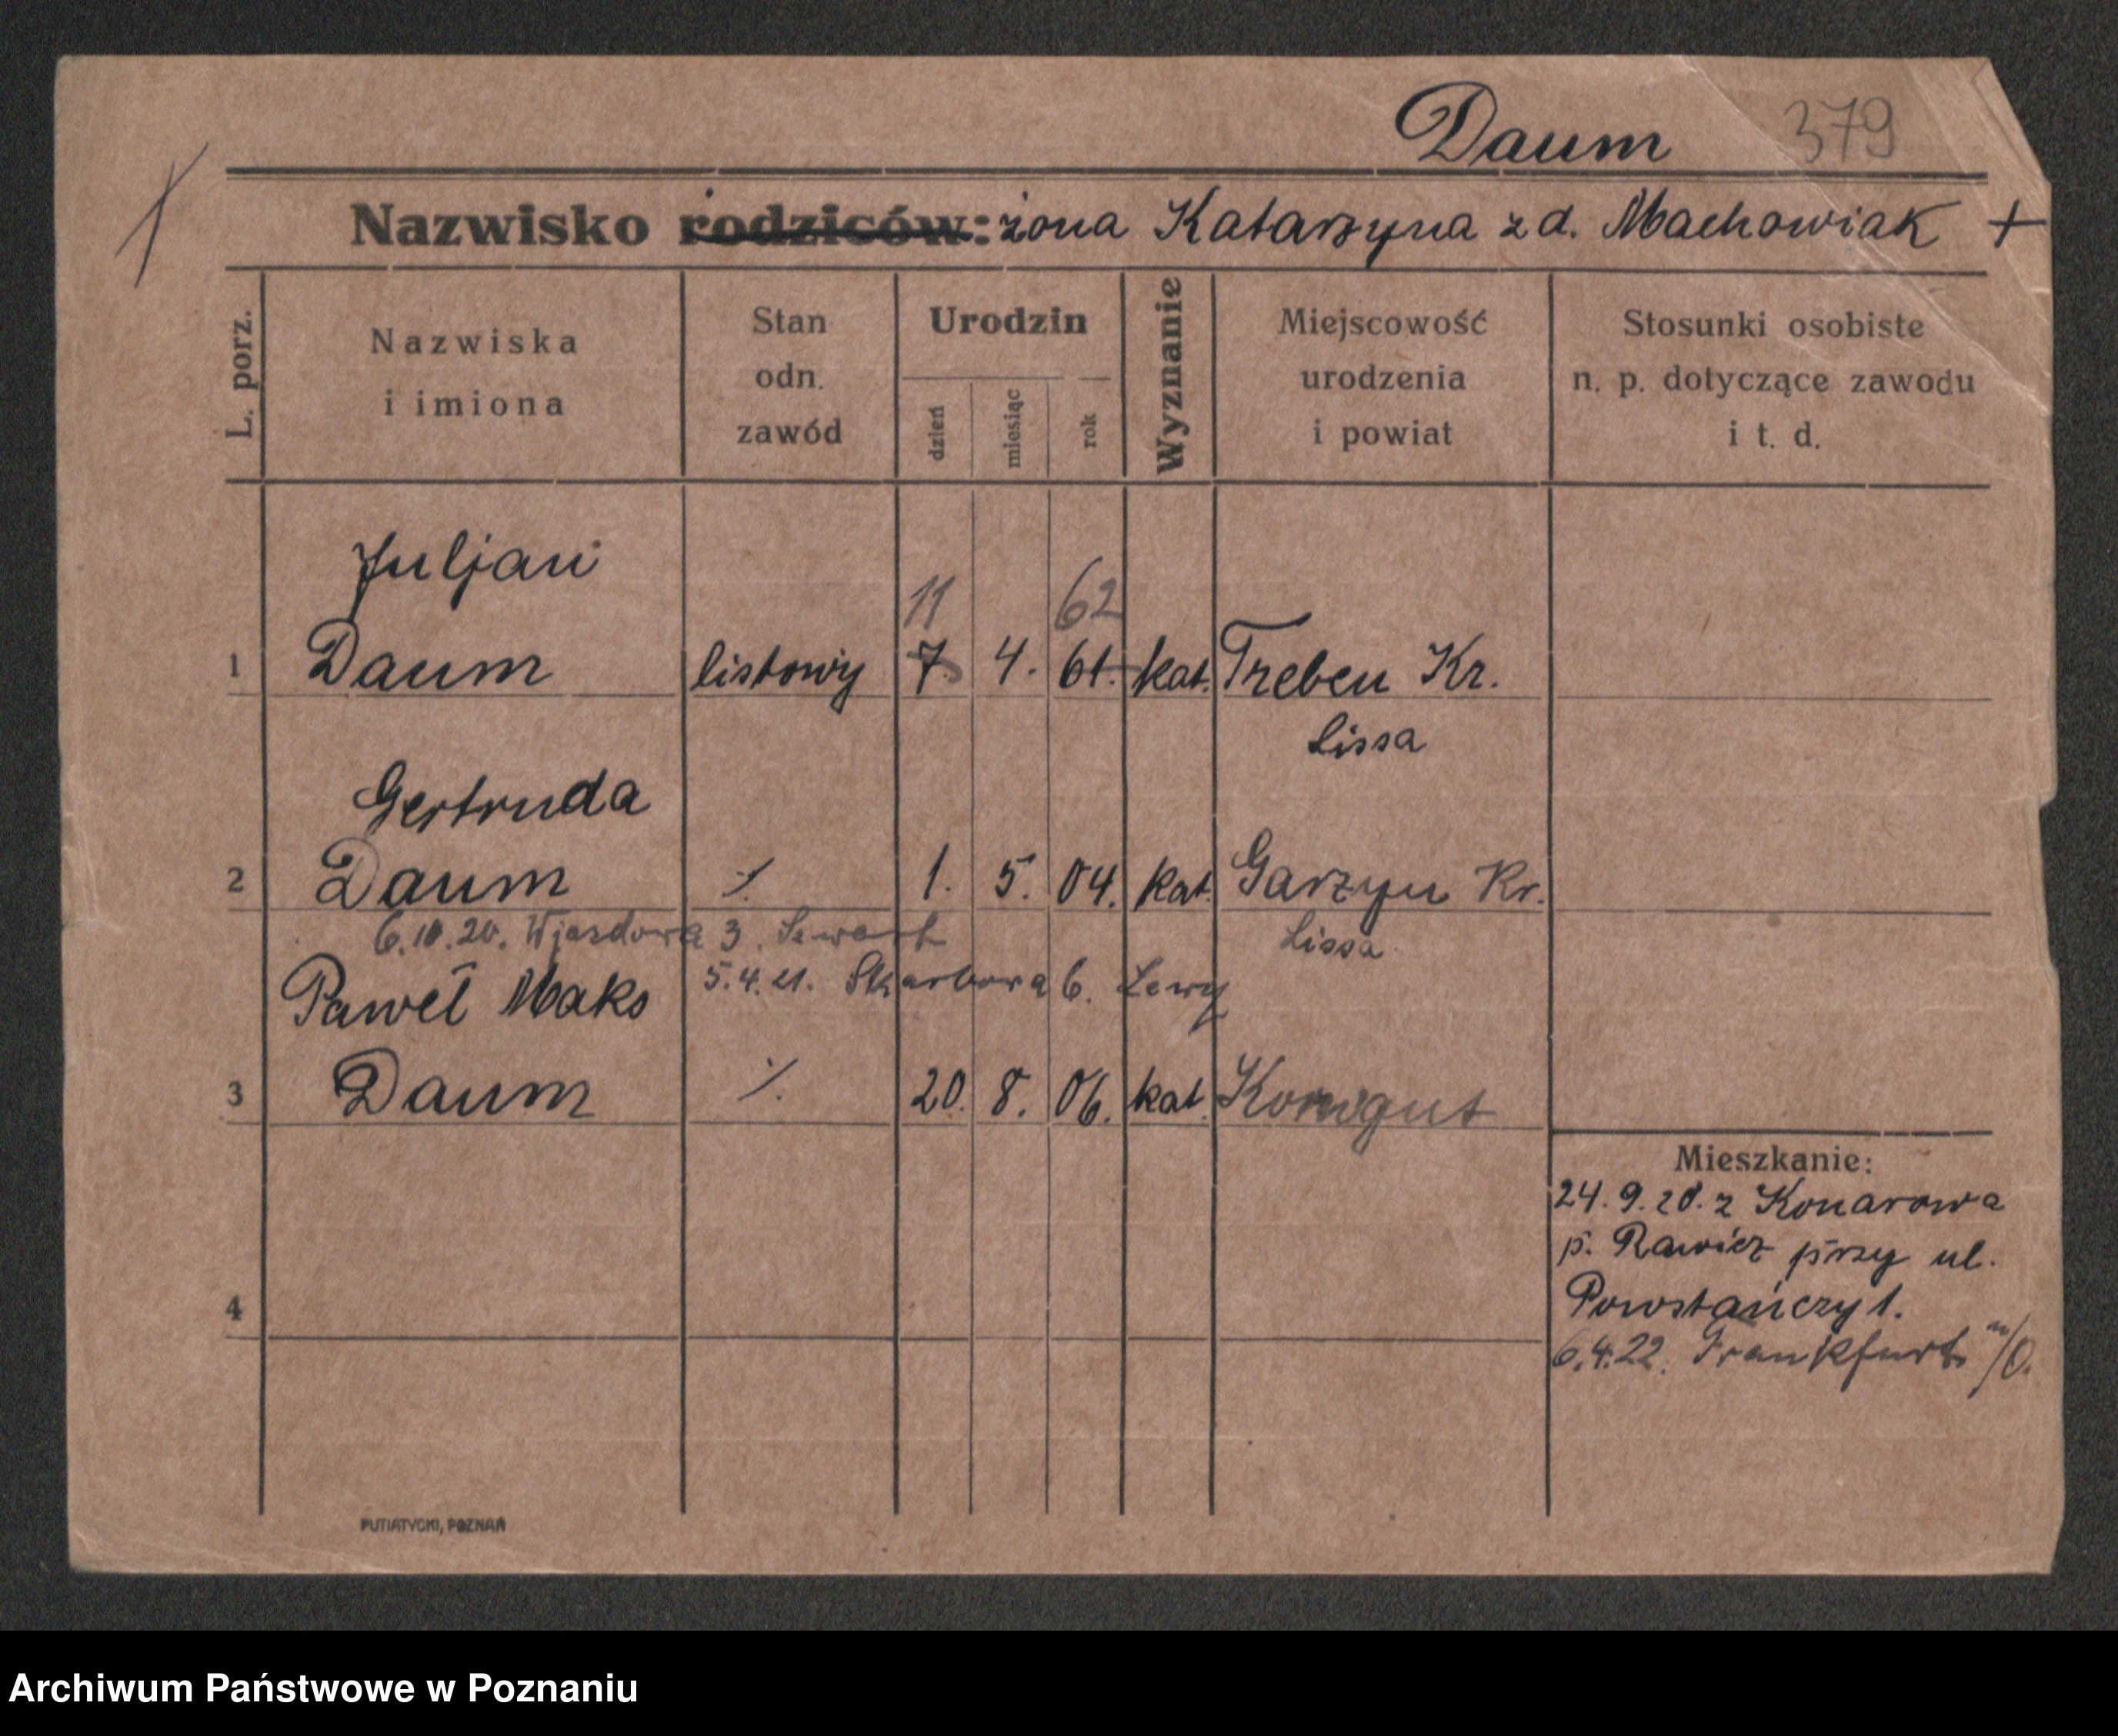 Daum 379
Nazwisko rodziców: żona Katarzyna z d. Machowiak +
L. porz.
Nazwiska
i imiona
Stan
odn.
zawód
Urodzin
dzień
miesiąc
rok
Wyznanie
Miejscowość
urodzenia
i powiat
Stosunki osobiste
n. p. dotyczące zawodu
i t. d.
Juljan
11 62
1 Daum listowy 7. 4. 61. kat. Treben Kr.
Lissa
Gertruda
2 Daum ·/. 1. 5. 04. kat. Garzyn Kr.
6.10.20. Wjazdowa 3.
Lissa
5.4.21. Skarbowa 6. Lewy
Paweł Maks
3 Daum ·/. 20. 8. 06. kat.
4
Mieszkanie:
24. 9. 20. z Konarowa
p. Rawicz przy ul.
Powstańczy 1.
6.4.22. Frankfurt n/O.
PUTIATYCKI, POZNAŃ
Archiwum Państwowe w Poznaniu